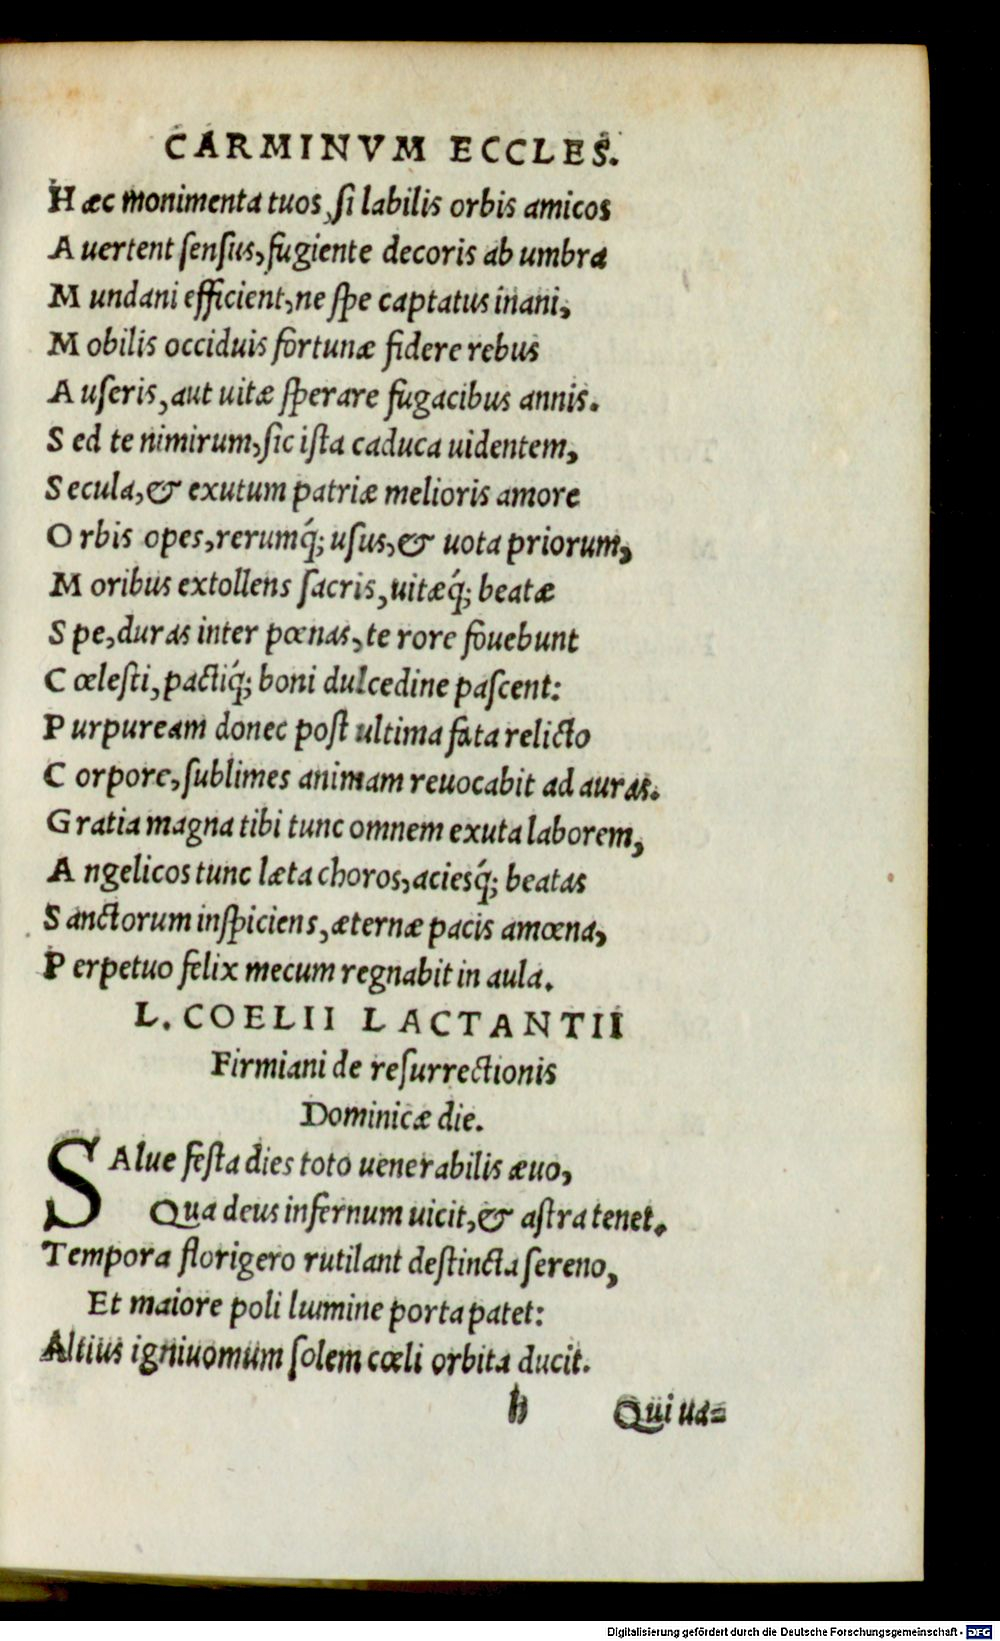 CARMINVM ECCLES.
H æc monimenta tuos, ſi labilis orbis amicos
A uertent ſenſus, fugiente decoris ab umbra
M undani efficient, ne ſpe captatus inani,
M obilis occiduis fortunæ fidere rebus
A uſeris, aut uitæ ſperare fugacibus annis.
S ed te nimirum, ſic iſta caduca uidentem,
S ecula, & exutum patriæ melioris amore
O rbis opes, rerumq́; uſus, & uota priorum,
M oribus extollens ſacris, uitæq́; beatæ
S pe, duras inter pœnas, te rore fouebunt
C œleſti, pactiq́; boni dulcedine paſcent:
P urpuream donec poſt ultima fata relicto
C orpore, ſublimes animam reuocabit ad auras.
G ratia magna tibi tunc omnem exuta laborem,
A ngelicos tunc læta choros, aciesq́; beatas
S anctorum inſpiciens, æternæ pacis amœna,
P erpetuo felix mecum regnabit in aula.
L. COELII LACTANTII
Firmiani de reſurrectionis
Dominicæ die.
SAlue feſta dies toto uenerabilis æuo,
Qua deus infernum uicit, & aſtra tenet.
Tempora florigero rutilant deſtincta ſereno,
Et maiore poli lumine porta patet:
Altius igniuomum ſolem cœli orbita ducit.
h Qui ua=
Digitalisierung gefördert durch die Deutsche Forschungsgemeinschaft - DFG